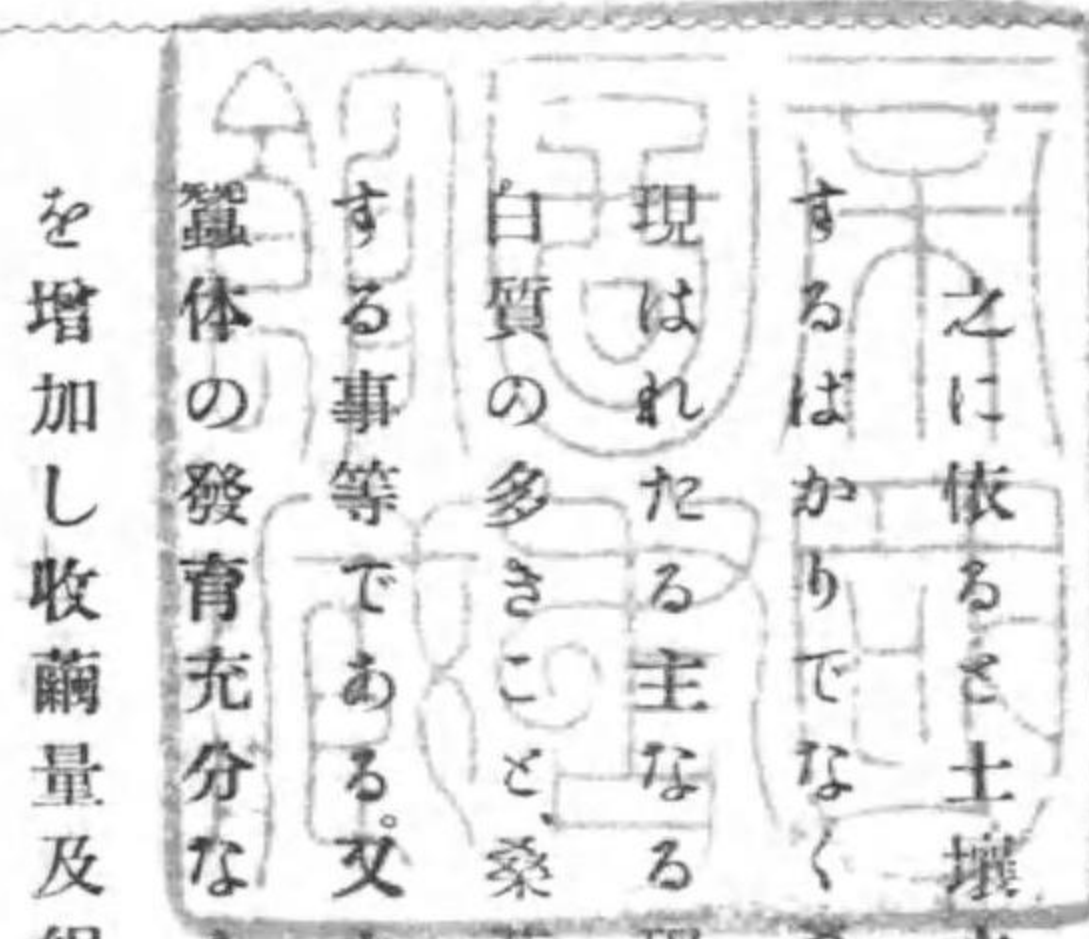 之に依るさ土壤
するばかりでなく
現はれたる主なる
白質の多きこと、桑
する事等である。又
蠶体の發育充分な
を增加し收繭量及